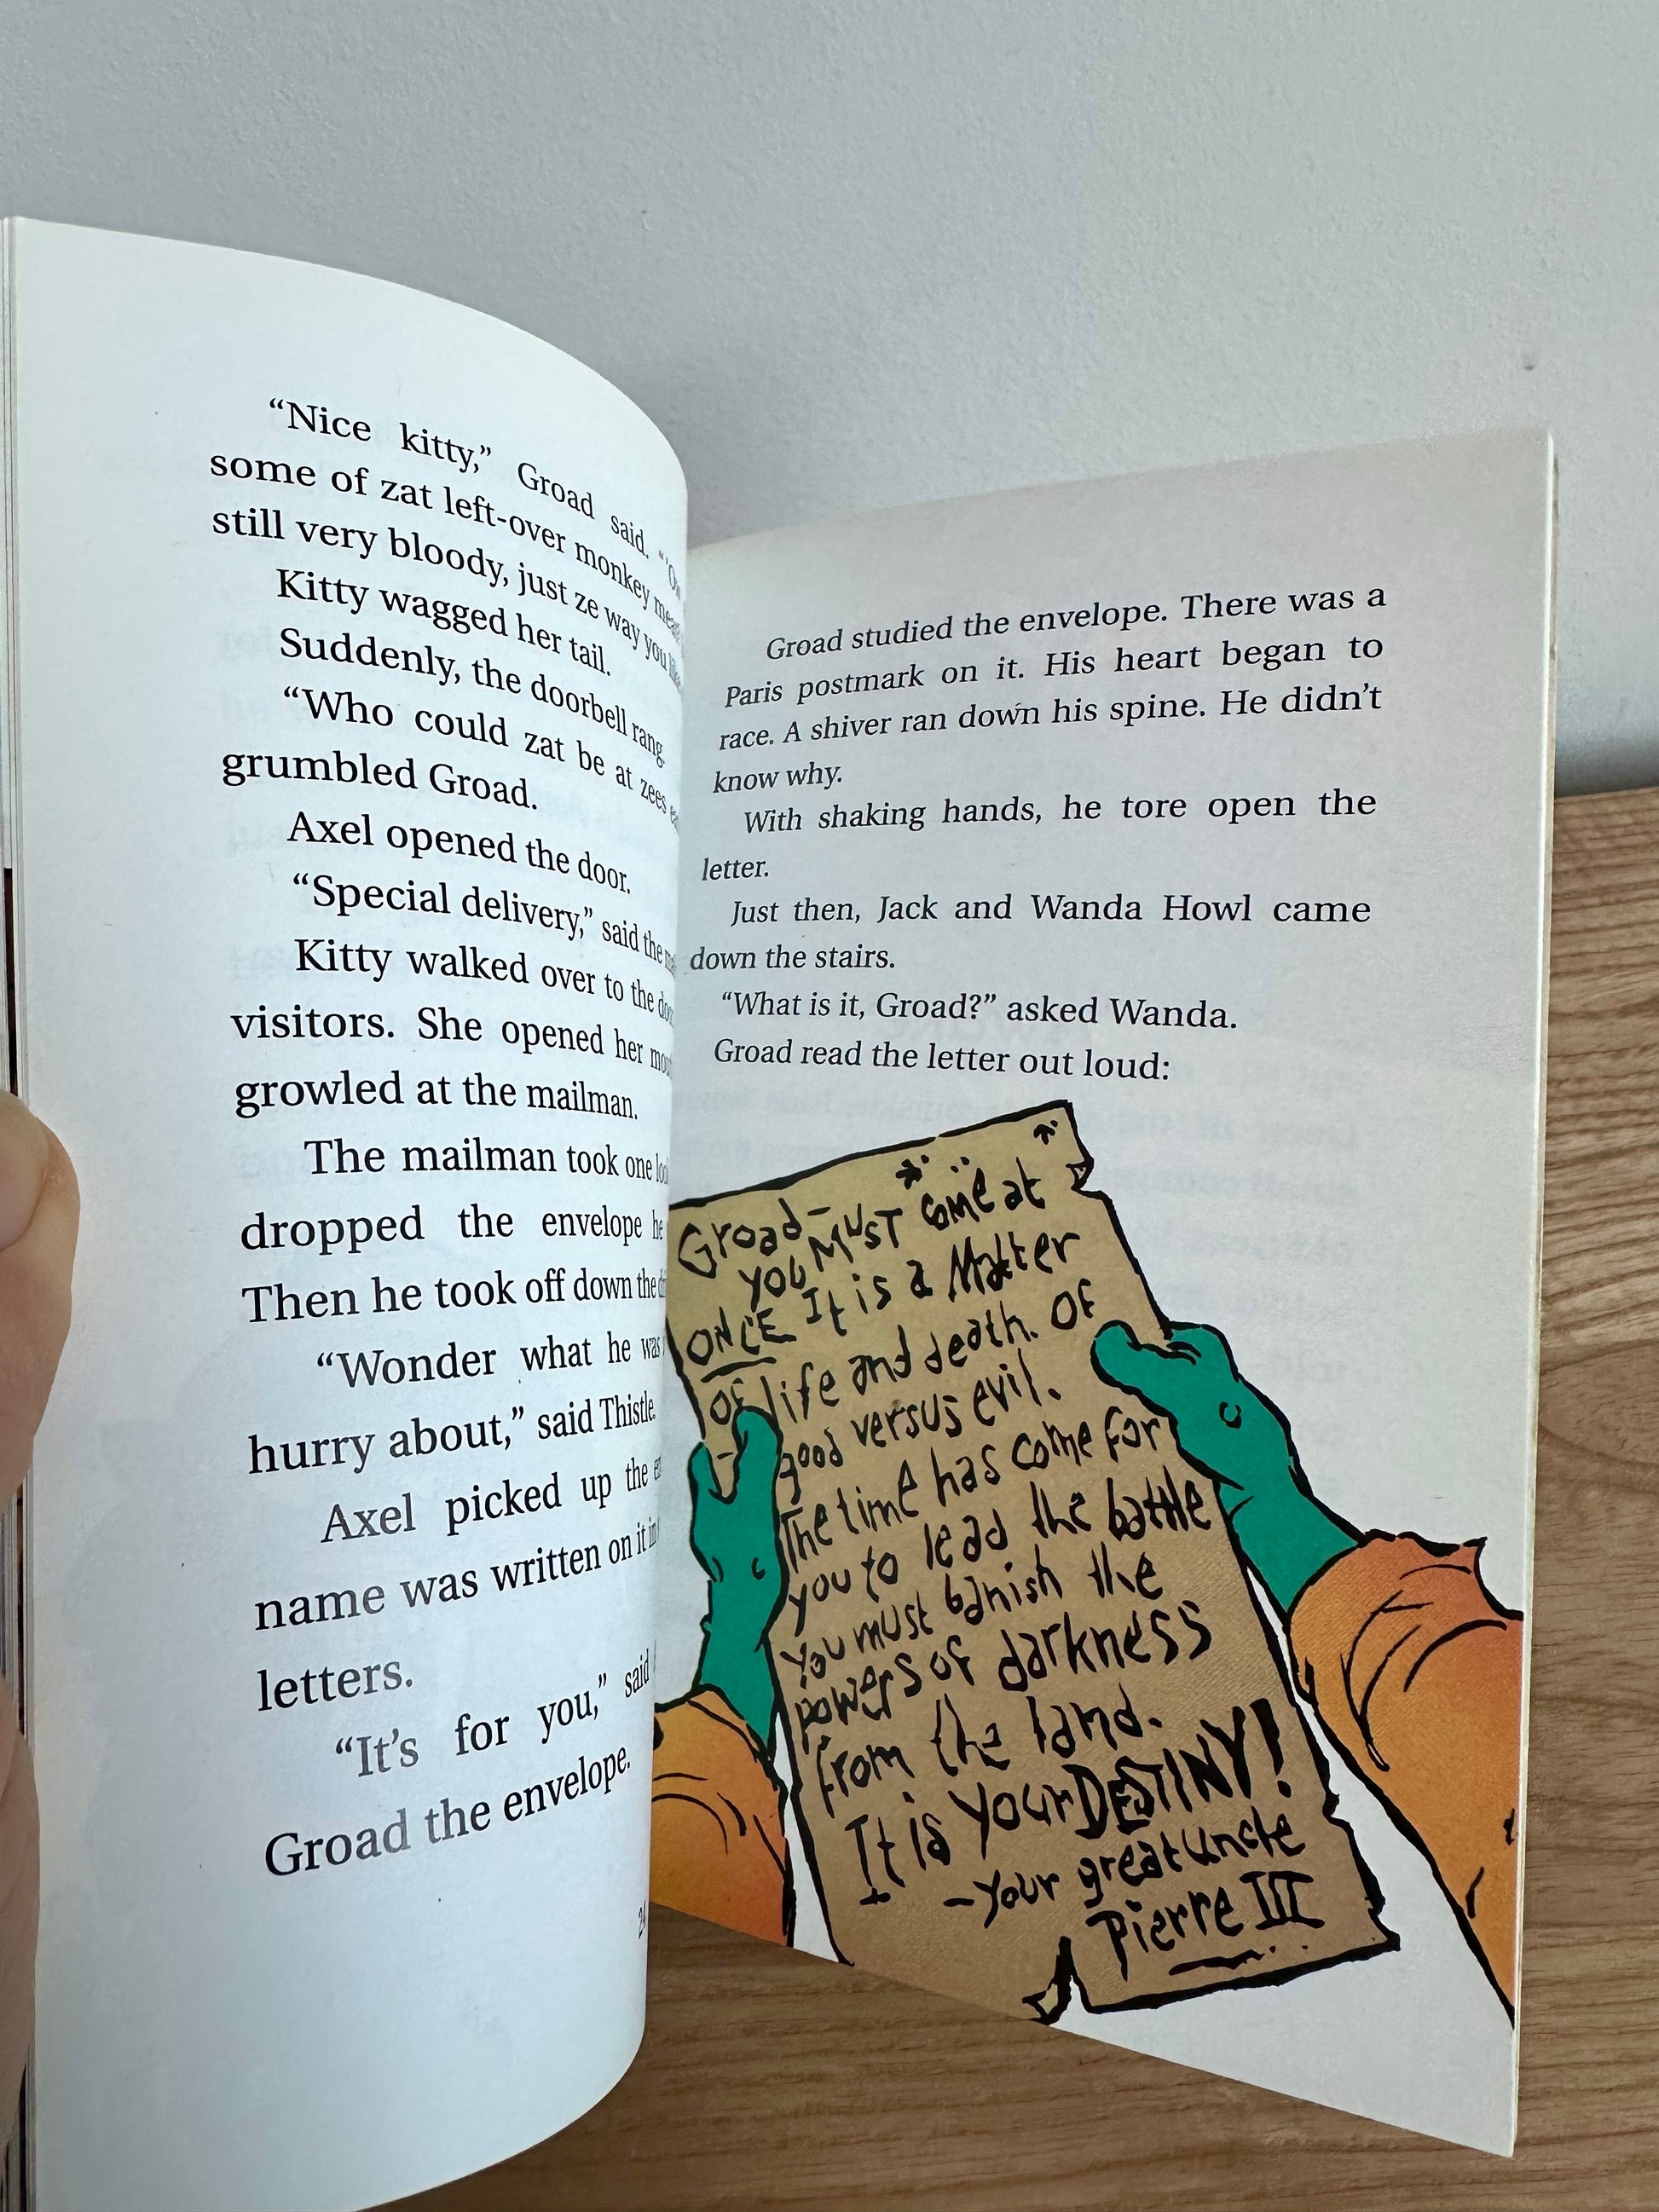 “Nice kitty,” Groad said.
some of zat left-over monkey
still very bloody, just ze way you
Kitty wagged her tail.
Suddenly, the doorbell rang.
“Who could zat be at zees
grumbled Groad.
Axel opened the door.
“Special delivery,” said the
Kitty walked over to the
visitors. She opened her
growled at the mailman.
The mailman took one
dropped the envelope
Then he took off down the
“Wonder what he was
hurry about,” said Thistle.
Axel picked up the
name was written on it in
letters.
“It’s for you,” said
Groad the envelope.
Groad studied the envelope. There was a
Paris postmark on it. His heart began to
race. A shiver ran down his spine. He didn’t
know why.
With shaking hands, he tore open the
letter.
Just then, Jack and Wanda Howl came
down the stairs.
“What is it, Groad?” asked Wanda.
Groad read the letter out loud:
Groad–
you MUST come at
ONCE It is a Matter
of life and death. Of
good versus evil.
The time has come for
you to lead the battle
You must banish the
powers of darkness
from the land.
It is your DESTINY!
–your great uncle
Pierre III